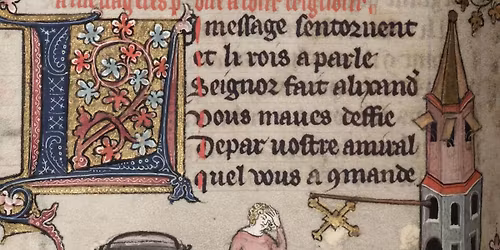 i message sentoruent
et li rois a parle
Seignor fait alixand'
Vous maues deffie
Depar uostre amiral
quel vous a 9mande